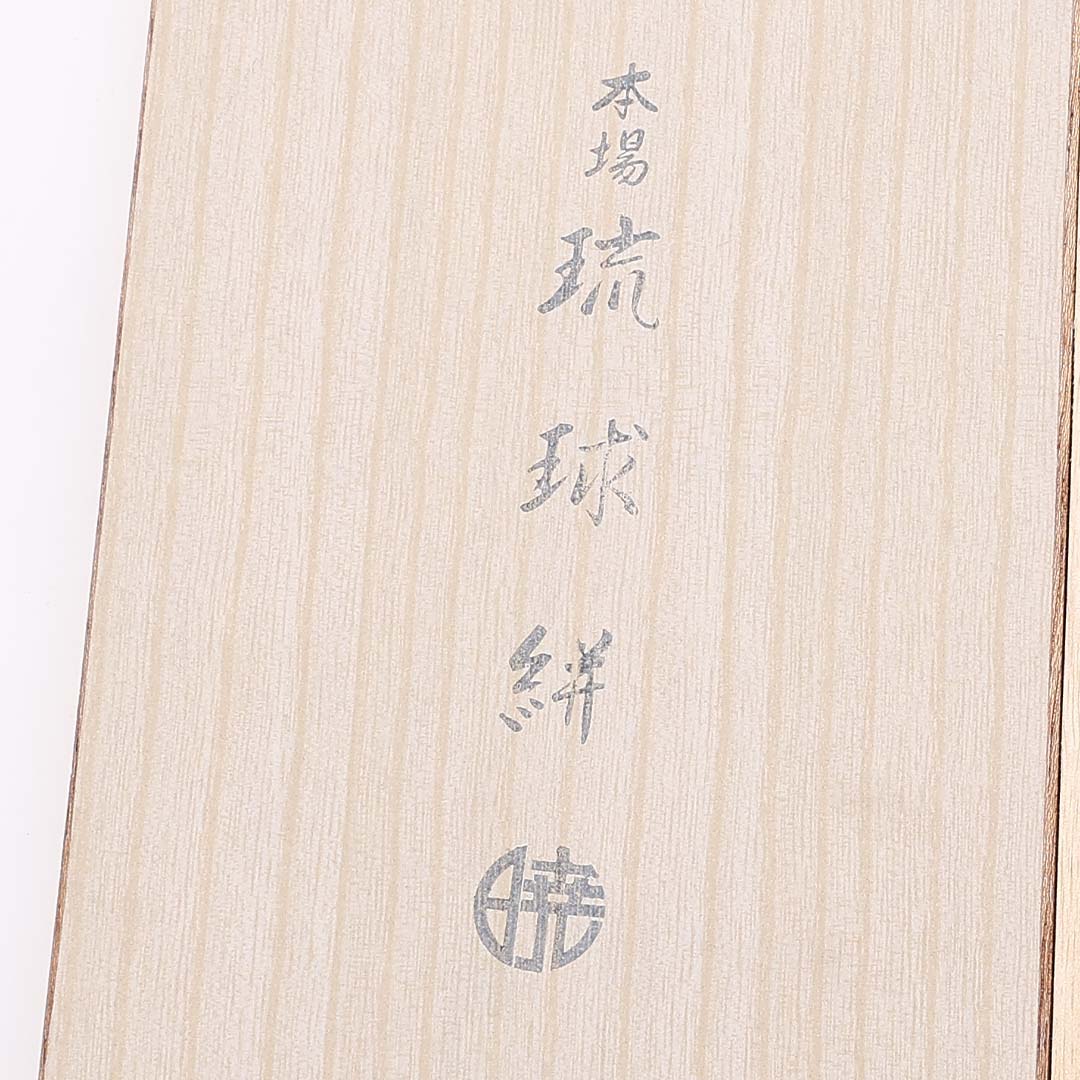 本場
琉球絣
暁